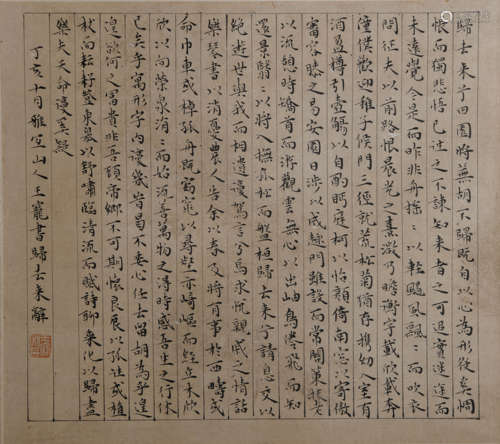 歸去来兮田園將蕪胡不歸既自以心為形役奚惆
悵而獨悲悟已往之不諫知来者之可追實迷途而
未遠覺今是而昨非舟搖:以輕颺風飄:而吹衣
問征夫以前路恨晨光之熹微乃瞻衡宇載欣載奔
僮僕歡迎稚子候門三徑就荒松菊猶存携幼入室有
酒盈樽引壺觴以自酌眄庭柯以怡顏倚南窓以寄傲
審容膝之易安園日涉以成趣門雖設而常關策扶老
以流憩時矯首而游觀雲無心以出岫鳥倦飛而知
還景翳:以將入撫孤松而盤桓歸去来兮請息交以
絕遊世與我而相遺復駕言兮焉求悅親戚之情話
樂琴書以消憂農人告余以春及將有事於西疇或
命巾車或棹孤舟既窈窕以尋壑亦崎嶇而經丘木欣
欣以向榮泉涓:而始流善萬物之得時感吾生之行休
已矣乎寓形宇內復幾時曷不委心任去留胡為乎遑
遑欲何之富貴非吾願帝鄉不可期懷良晨以孤往或植
杖而耘耔登東皋以舒嘯臨清流而賦詩聊乘化以歸盡
樂夫天命復奚疑
丁亥十月雅宜山人王寵書歸去来辭